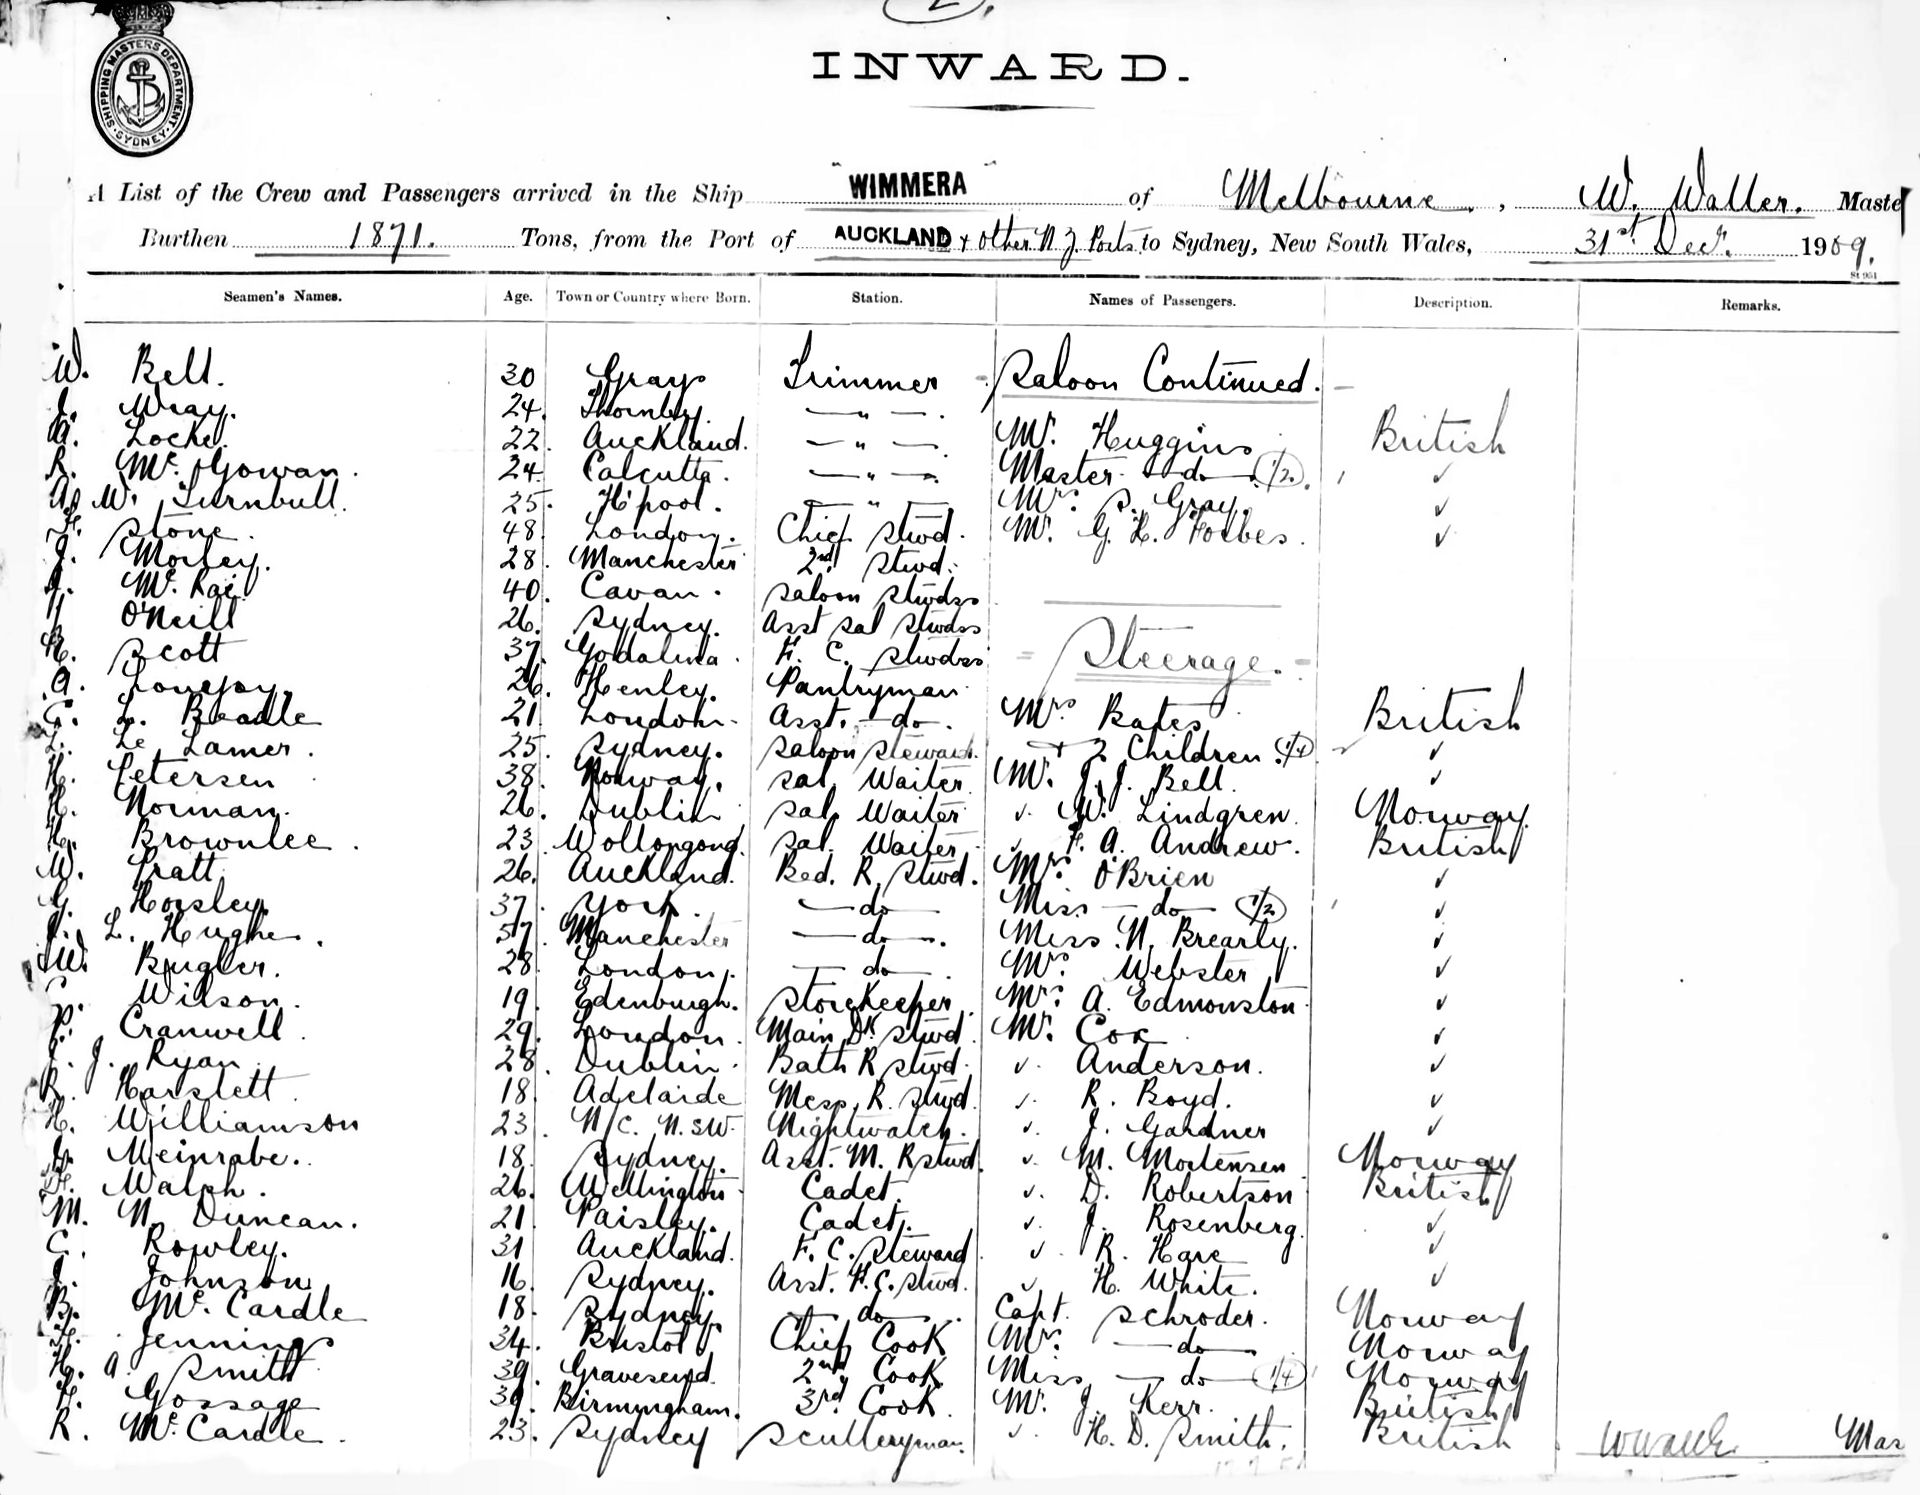 2.
SHIPPING MASTERS DEPARTMENT · SYDNEY ·
INWARD.
A List of the Crew and Passengers arrived in the Ship "WIMMERA" of Melbourne, W. Waller. Maste
Burthen 1871. Tons, from the Port of AUCKLAND + other N.Z. Ports to Sydney, New South Wales, 31st Decr. 1909.
Seamen's Names. Age. Town or Country where Born. Station. Names of Passengers. Description. Remarks.
W. Bell. 30 Grays Trimmer Saloon Continued.
J. Wray. 24. Thornby. — " —.
A. Locke. 22. Auckland. — " — Mr. Huggins British
R. Mc. Gowan. 24. Calcutta. — " — Master — do — (1/2). ✓
W. Turnbull. 25. H'pool. — " — Mrs. S. Gray. ✓
Stone. 48 London. Chief Stwd. Mr. G. L. Forbes. ✓
J. Morley. 28. Manchester 2nd Stwd.
Mc. Rae 40. Cavan. Saloon Stwdss
O'Neill 26. Sydney. Asst Sal Stwdss
Scott 37. F. C. Stwdss Steerage.
A. Lovejoy. 26. Henley. Pantryman.
L. Beadle 21. London. Asst. — do. Mrs Bates British
L. Le Lamer. 25. Sydney. Saloon Steward. + 2 Children. (1/4) ✓
H. Petersen 38. Norway. Sal. Waiter. Mr. J. J. Bell. ✓
H. Norman. 26. Dublin Sal. Waiter ✓. W. Lindgren. Norway.
H. Brownlee. 23. Wollongong. Sal. Waiter ✓ F. A. Andrew. British
W. Pratt. 26. Auckland. Bed. R. Stwd. Mrs. O'Brien ✓
G. Horsley. 37. York. — do — Miss — do — (1/2) ✓
L. Hughes. 57. Manchester — do —. Miss. N. Brearly. ✓
W. Bugler. 28. London. — do —. Mrs. Webster ✓
Wilson. 19. Edenburgh. Storekeeper. Mrs. A. Edmonston. ✓
P. Cranwell. 29. London. Main Dk Stwd. Mr. Cox ✓
J. Ryan. 28. Dublin. Bath R Stwd. ✓. Anderson. ✓
R. Harslett. 18. Adelaide Mess. R. Stwd. ✓. R. Boyd. ✓
H. Williamson 23. N/C. N.S.W. Nightwatch. ✓. J. Gardner ✓
Meinrabe. 18. Sydney. Asst. M. R Stwd. ✓. M. Mortensen Norway
Walsh. 26. Wellington Cadet. ✓. D. Robertson British
M. N. Duncan. 21. Paisley. Cadet. ✓. J. Rosenberg. ✓
C. Rowley. 31 Auckland. F. C. Steward ✓. R. Hare ✓
J. Johnson 16. Sydney. Asst. F.C. Stwd. ✓ H. White. ✓
B. Mc. Cardle 18. Sydney. — do —. Capt. Schroder. Norway
Jennings 34. Bristol Chief Cook Mrs. — do — Norway
H. A. Smith 39. Gravesend. 2nd Cook Miss — do — (1/4) Norway
Gossage 39. Birmingham. 3rd. Cook. Mr. J. Kerr. British
R. Mc. Cardle. 23. Sydney Sculleryman. ✓ H. D. Smith. British Mas